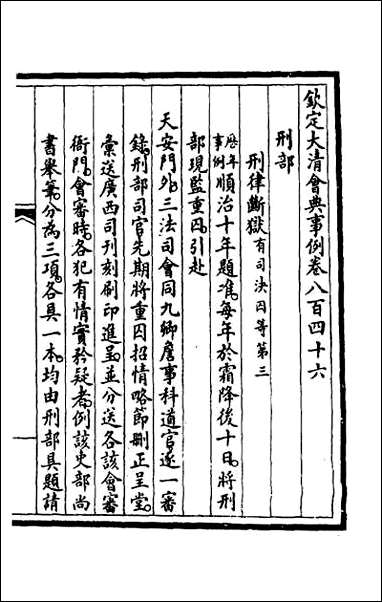 欽定大清會典事例卷八百四十六
刑部
刑律斷獄有司決囚等第三
歷年事例順治十年題准。每年於霜降後十日。將刑
部現監重囚。引赴
天安門外。三法司會同九卿詹事科道官逐一審
錄。刑部司官先期將重囚招情略節。刪正呈堂。
彙送廣西司刊刻刷印進呈。並分送各該會審
衙門。會審時。各犯有情實矜疑者。例該吏部尚
書舉筆。分為三項。各具一本。均由刑部具題請